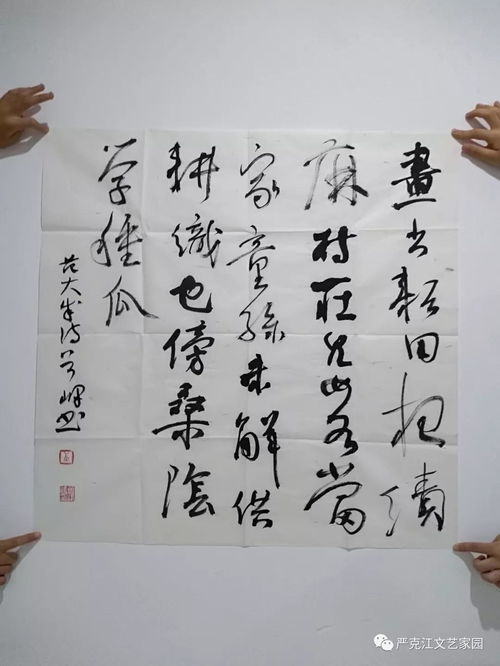 晝出耘田夜績
麻村莊兒女各當
家童孫未解供
耕織也傍桑陰
學種瓜
范大成詩
严克江文艺家园